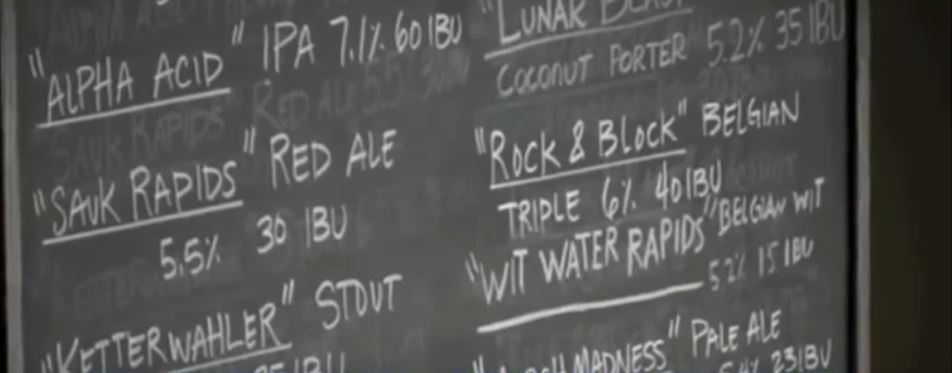 "ALPHA ACID" IPA 7.1% 60 IBU
"SAUK RAPIDS" RED ALE
5.5% 30 IBU
"KETTERWAHLER" STOUT
IBU
"LUNAR BLAST"
COCONUT PORTER 5.2% 35 IBU
"ROCK & BLOCK" BELGIAN
TRIPLE 6% 40 IBU
"WIT WATER RAPIDS" BELGIAN WIT
5.2% 15 IBU
MADNESS" PALE ALE
23 IBU